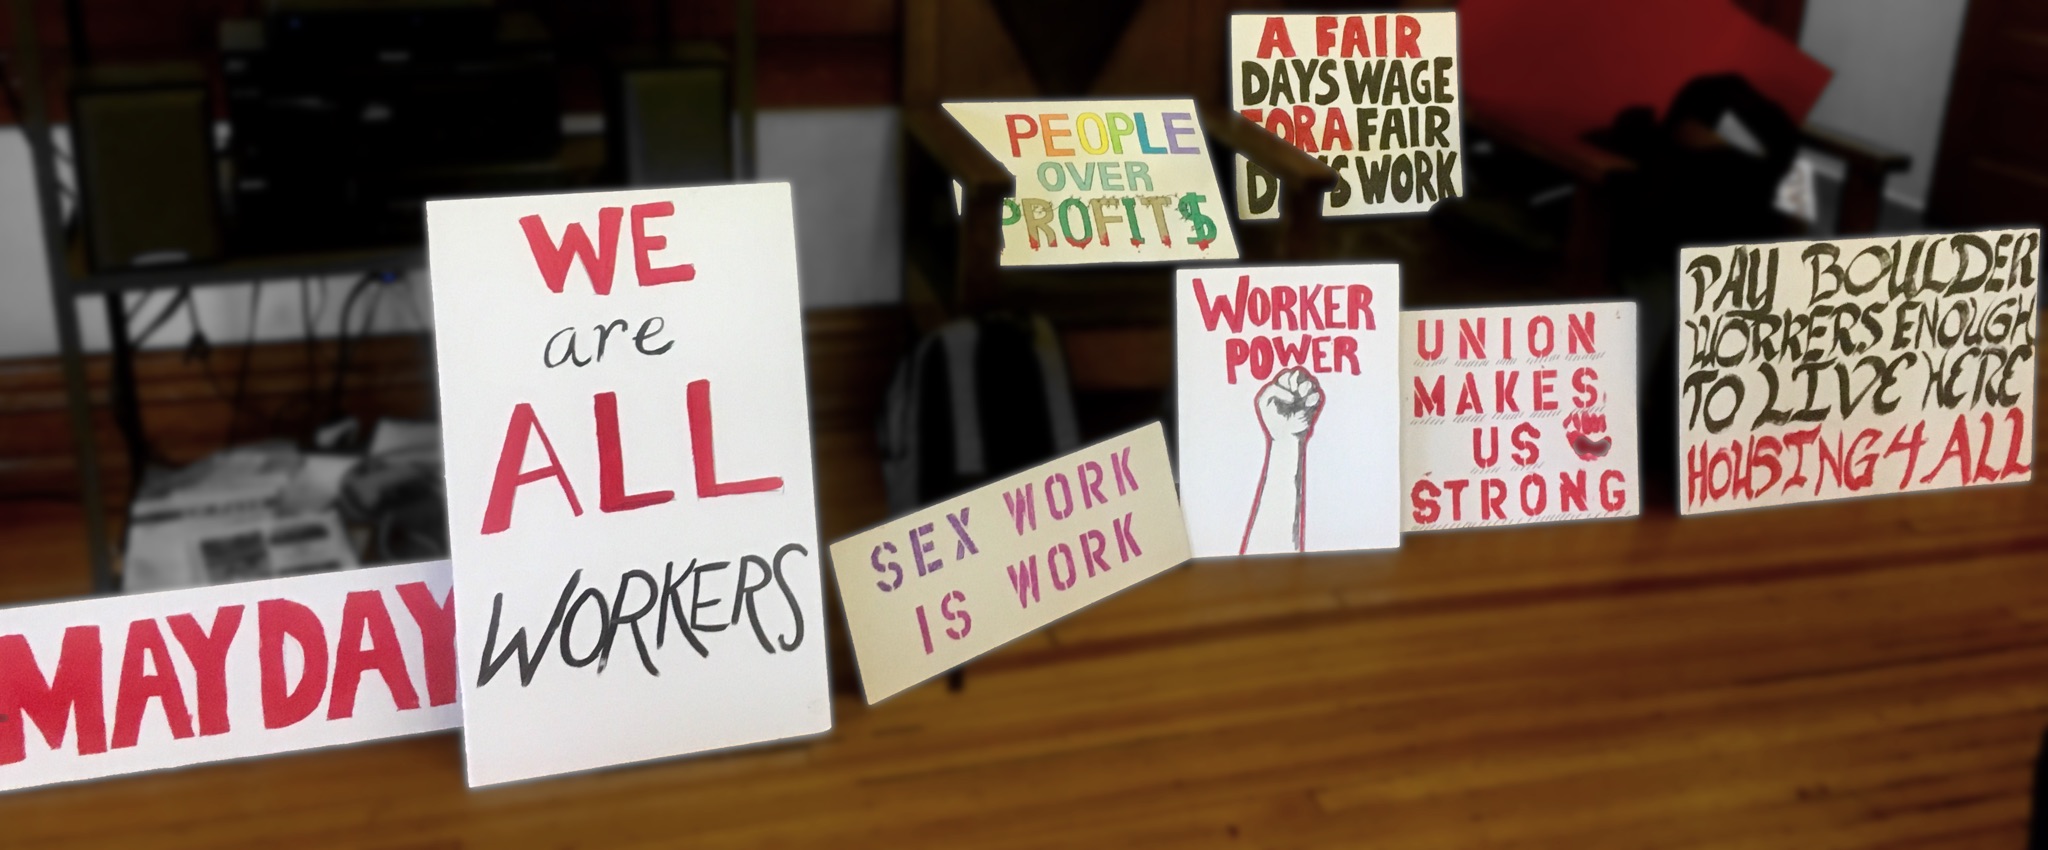 MAYDAY
WE
are
ALL
WORKERS
SEX WORK
IS WORK
PEOPLE
OVER
PROFIT$
A FAIR
DAYS WAGE
FOR A FAIR
DAYS WORK
WORKER
POWER
UNION
MAKES
US
STRONG
PAY BOULDER
WORKERS ENOUGH
TO LIVE HERE
HOUSING 4 ALL